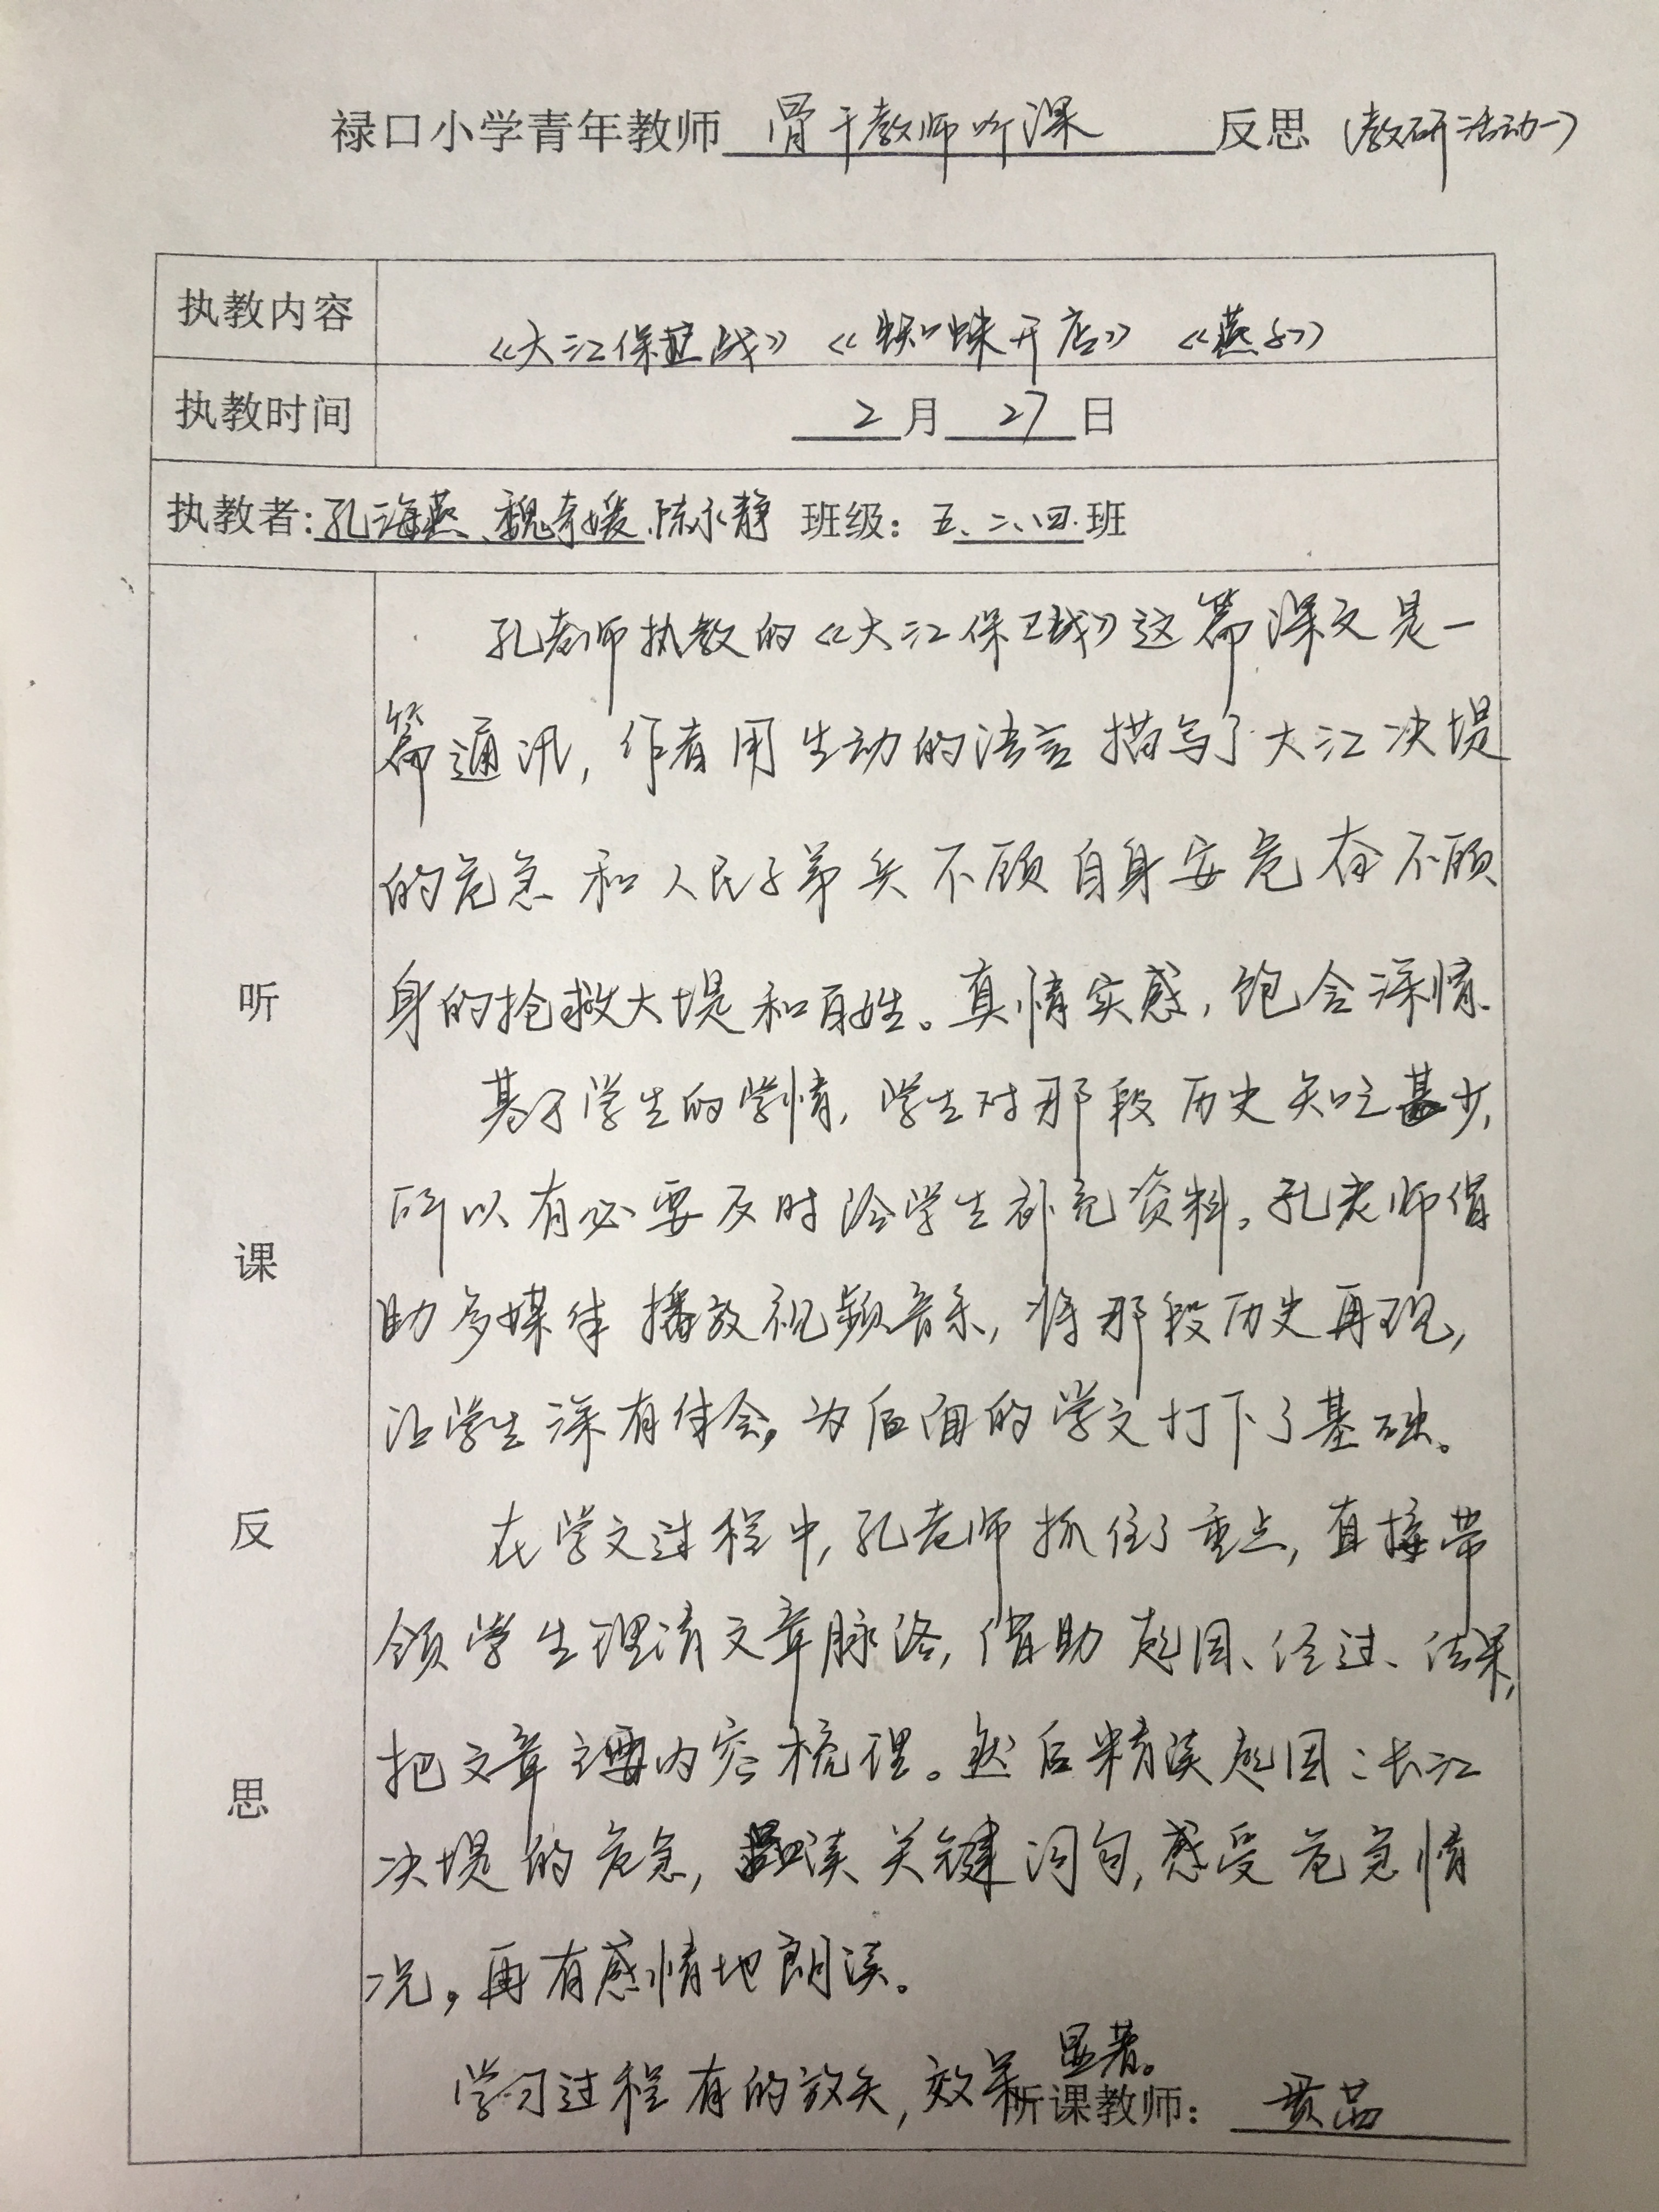 禄口小学青年教师 骨干教师听课 反思（教研活动一）
执教内容 《大江保卫战》《蜘蛛开店》《燕子》
执教时间 2月27日
执教者：孔海燕、魏奇媛、陈永静 班级：五、二、四.班
孔老师执教的《大江保卫战》这篇课文是一
篇通讯，作者用生动的语言描写了大江决堤
的危急和人民子弟兵不顾自身安危奋不顾
身的抢救大堤和百姓。真情实感，饱含深情.
基于学生的学情，学生对那段历史知之甚少，
所以有必要及时给学生补充资料。孔老师借
助多媒体播放视频音乐，将那段历史再现，
让学生深有体会，为后面的学文打下了基础。
在学文过程中，孔老师抓住了重点，直接带
领学生理清文章脉络，借助起因、经过、结果，
把文章主要内容梳理。然后精读起因：长江
决堤的危急，读关键词句，感受危急情
况，再有感情地朗读。
学习过程有的放矢，效果显著。
听课反思
听课教师：贡品